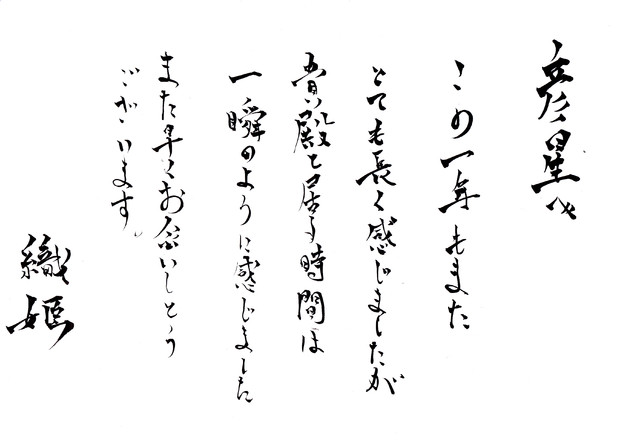 彦星へ
この一年もまた
とても長く感じましたが
貴殿と居る時間は
一瞬のように感じました
また早くお会いしとう
ございます。
織姫